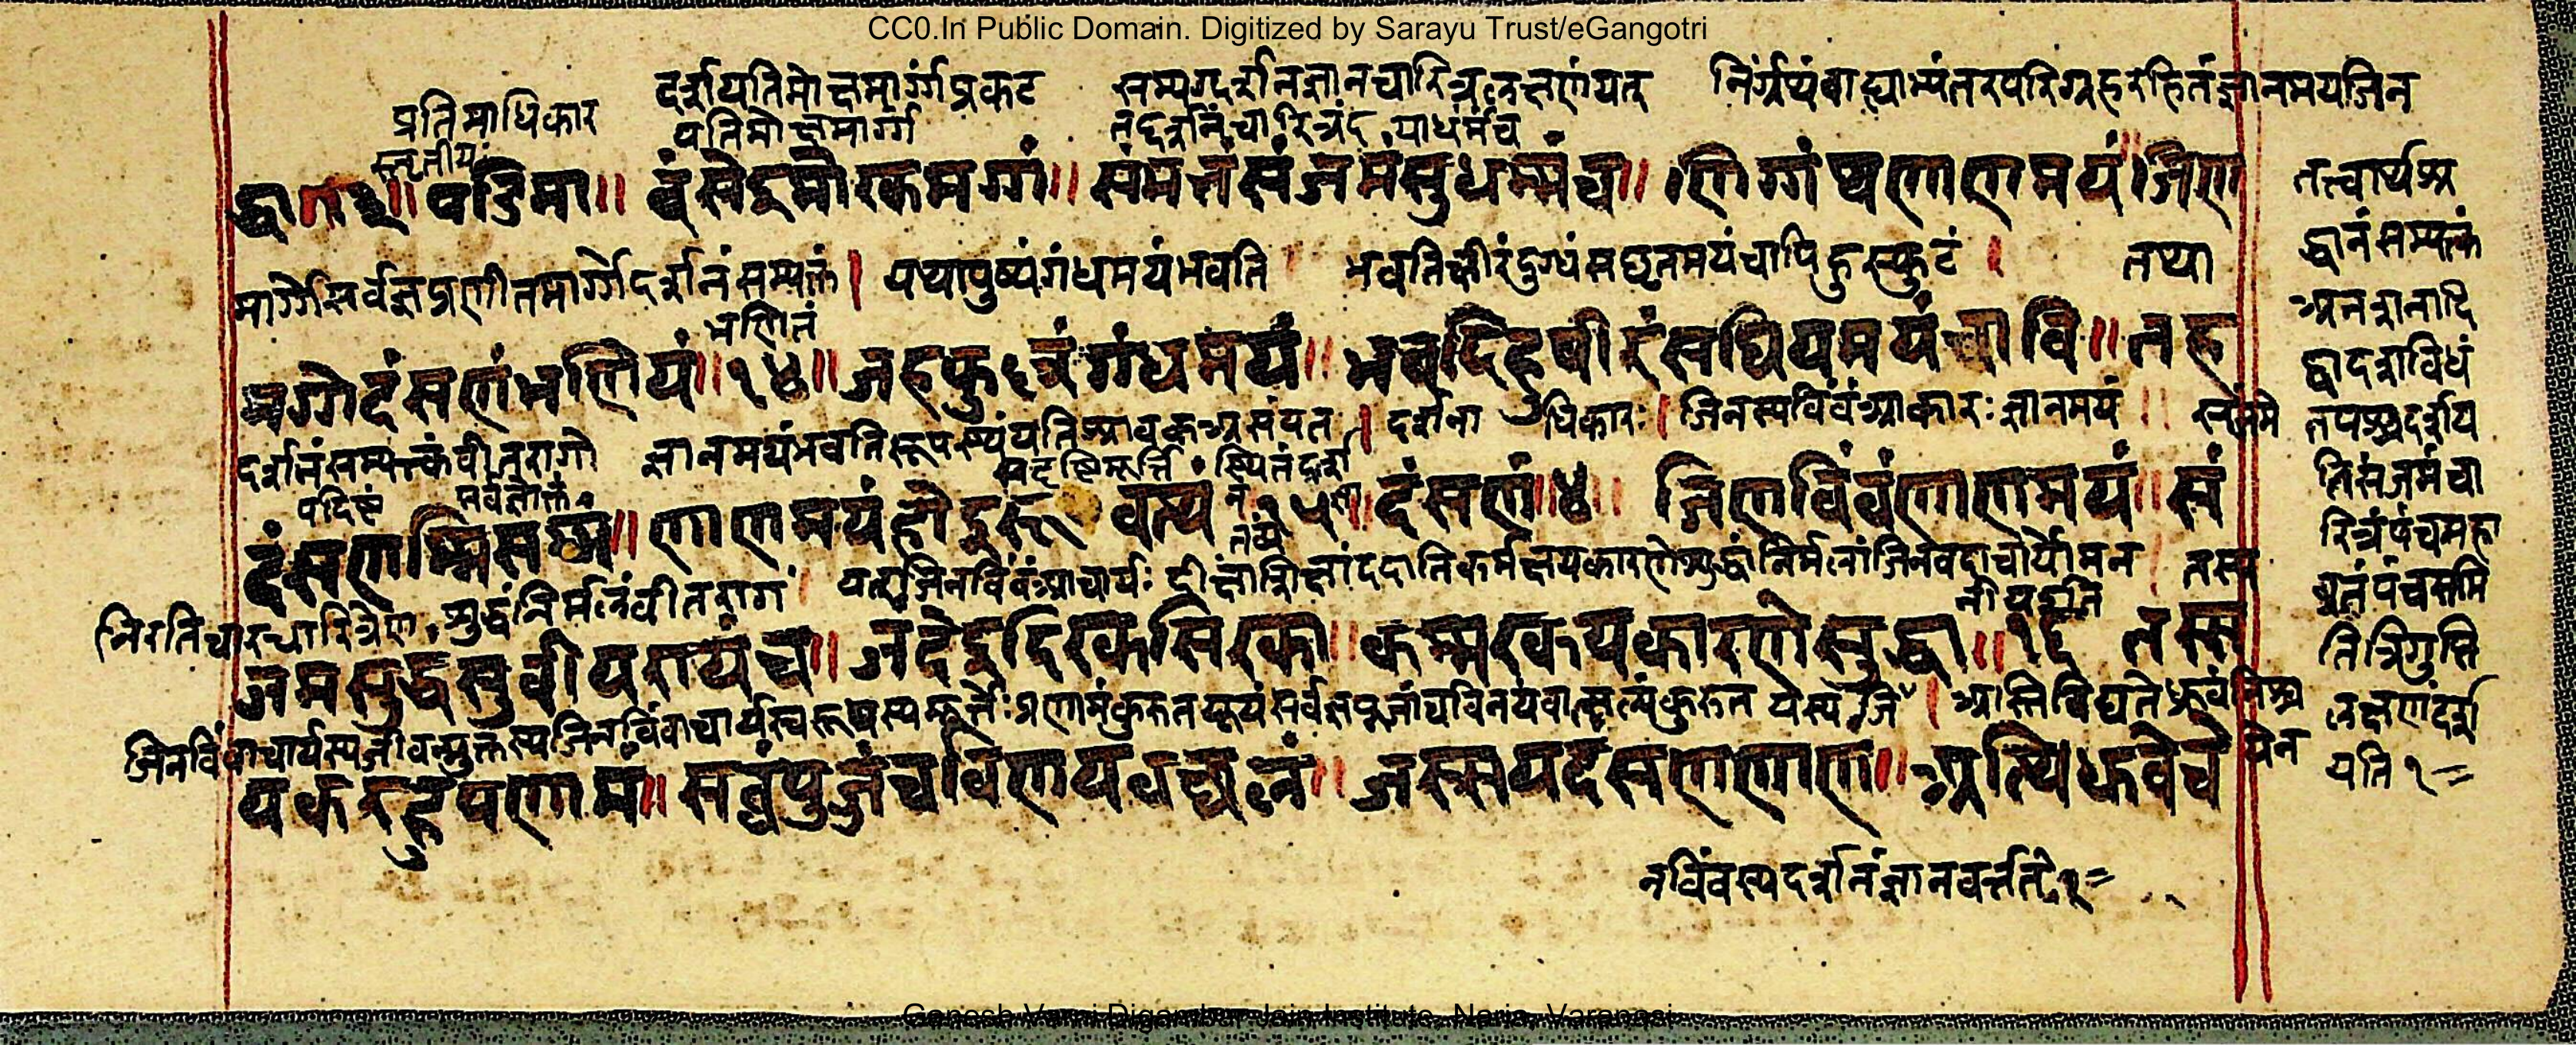 CC0.In Public Domain. Digitized by Sarayu Trust/eGangotri
दर्शयतिमोक्षमार्ग्गप्रकट सम्यग्दर्शनज्ञानचारित्रलक्षणंयत् निर्ग्रंथंबाह्याभ्यंतरपरिग्रहरहितंज्ञानमयजिन
प्रतिमाधिकार
स्तृतीयः
पतिमोक्षमार्ग्ग
पडिमा॥ दंसेइमोरकमग्गं॥ संमत्तंसंजमंसुधम्मंच॥ णिग्गंथणाणमयं॥जिण
मार्ग्गेसर्वज्ञप्रणीतमार्ग्गेदर्शनंसम्यक्तं। यथापुष्पंगंधमयंभवति भवतिक्षीरंदुग्धंसघृतमयंचापिहुस्फुटं । तथा
भणितं
मग्गेदंसणंभणियं॥१४॥जहफुल्लंगंधमयं॥भवदिहुषीरंसघियमयंचावि॥तह
दर्शनंसम्यक्तंवीतरागो ज्ञानमयंभवतिरूपस्थंयतिश्रावकअसंयत। दर्शना धिकारः। जिनस्यबिंबंआकारः ज्ञानमयं॥
दंसणम्मिसम्मं॥णाणमयंहोइरू वत्थं १५॥ दंसणं॥४॥ जिणबिंबंणाणमयं॥सं
निरतिचारचारित्रेण शुद्धंनिर्मलंवीतरागं यत्जिनबिंबंआचार्यः दीक्षाशिक्षांददातिकर्मक्षयकारणेशुद्धांनिर्मलां
जमसुद्धंसुवीयरायंच॥जंदेइदिरकसिरका॥कम्मरकयकारणेसुद्धा॥१६ तस्स
जिनबिंबाचार्यस्यजीवन्मुक्तस्यजिनबिंबाचार्यस्वरूपस्यमूर्तेः प्रणामंकुरुतयूयंसर्वज्ञपूजांचविनयंवात्सल्यंकुरुत यस्य अस्तिविद्यतेध्रुवंनिश्च
यकरहुपणामं॥सव्वंपुज्जंचविणयवच्छल्लं॥जस्सयदंसणणाणं॥अत्थिधुवंचे
नबिंबस्यदर्शनंज्ञानवर्त्तते
तत्वार्थश्र
द्धानंसम्यक्तं
अनशनादि
द्वादशविधं
तपश्चदर्शय
तिसंजमंचा
रित्रंपंचमहा
व्रतंपंचसमि
तित्रिगुप्ति
लक्षणंदर्श
यति१
Ganesh Varni Digambar Jain Institute, Naria, Varanasi